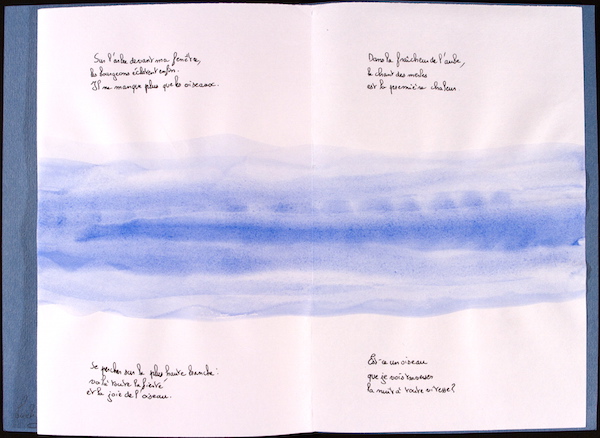 Sur l'arbre devant ma fenêtre,
les bourgeons éclatent enfin.
Il ne manque plus que les oiseaux.
Dans la fraîcheur de l'aube,
le chant des merles
est la première chaleur.
Se percher sur la plus haute branche :
voilà toute la fierté
et la joie de l'oiseau.
Est-ce un oiseau
que je vois traverser
la nuit à toute vitesse ?